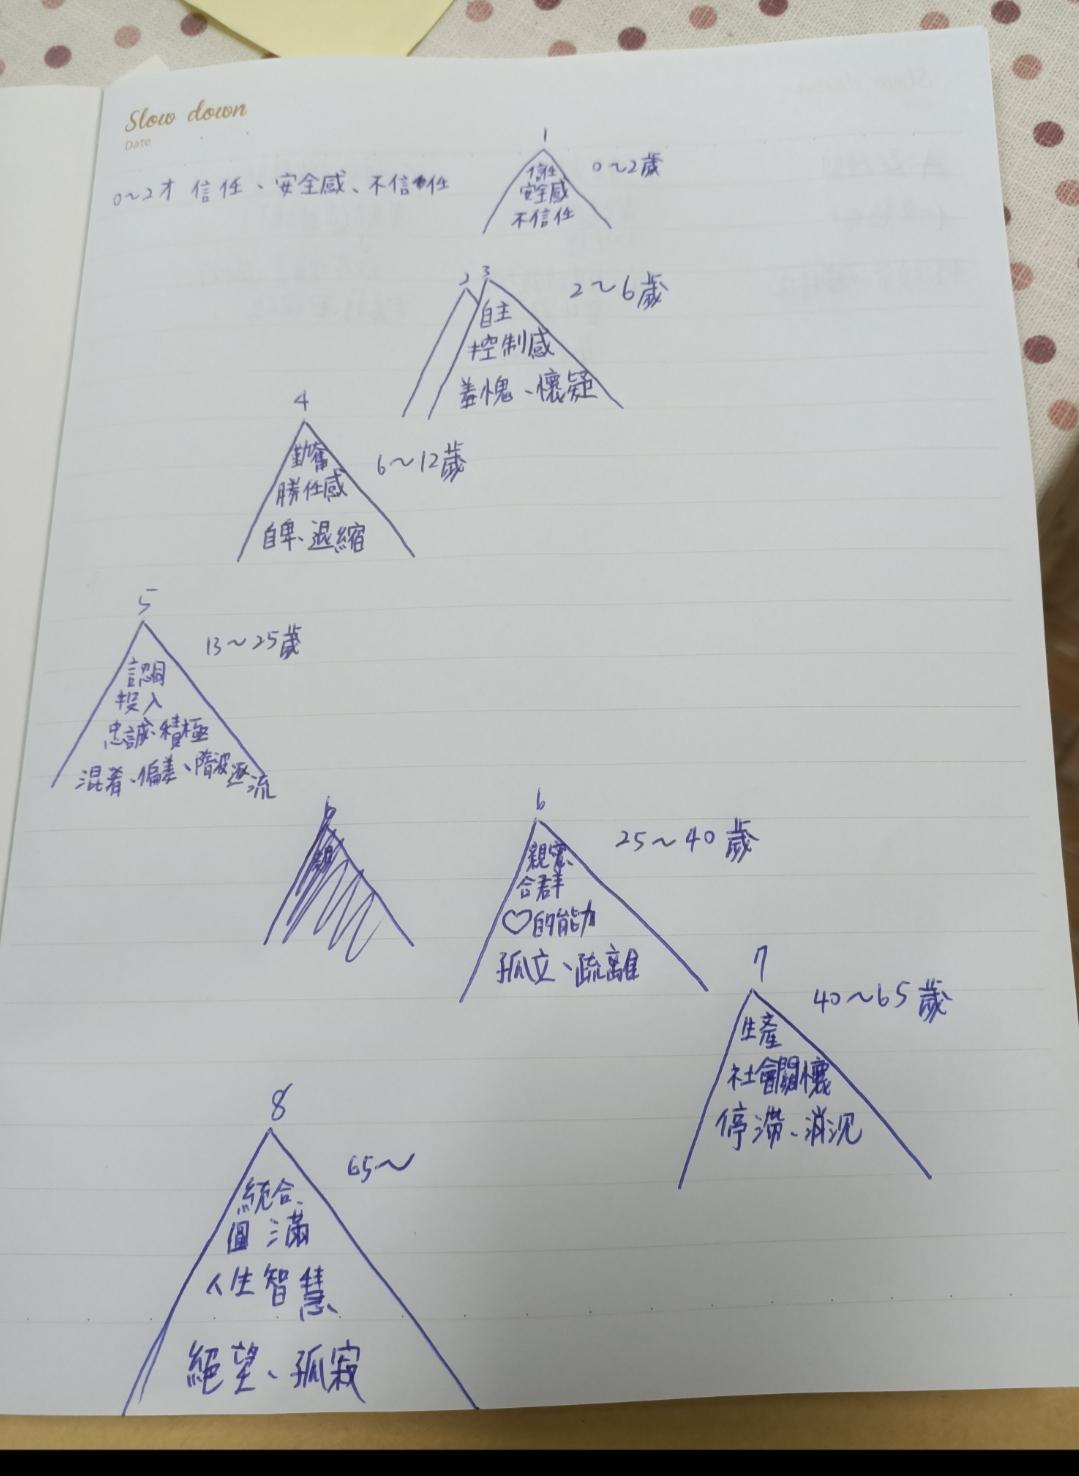 Slow down
Date
1
0～2才 信任、安全感、不信任
信任
安全感
不信任
0～2歲
2 3
2～6歲
自主
控制感
羞愧、懷疑
4
勤奮
勝任感
自卑、退縮
6～12歲
5
13～25歲
認同
投入
忠誠、積極
混肴、偏差、隋波逐流
6
25～40歲
親密、
合群
♡的能力
孤立、疏離
7
40～65歲
生產
社會關懷
停滯、消沉
8
65～
統合、
圓滿
人生智慧
絕望、孤寂